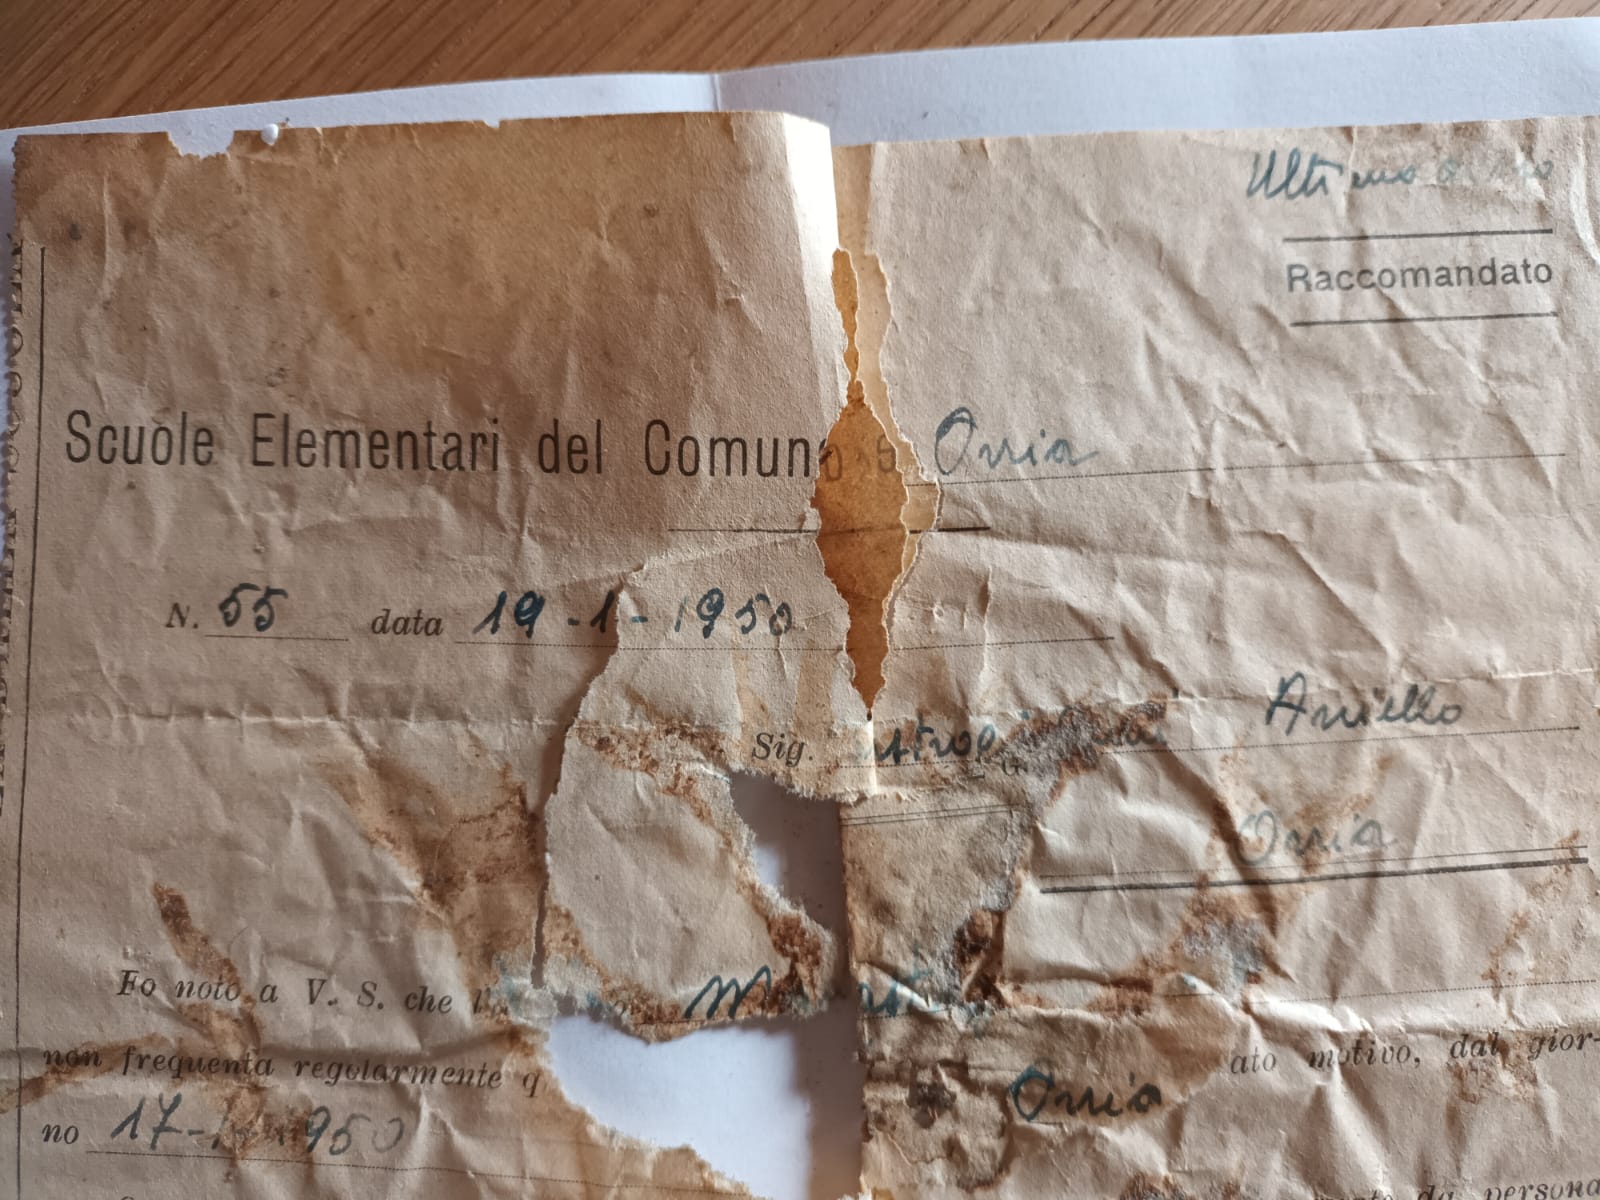 Ultimo
Raccomandato
Scuole Elementari del Comune Orria
N. 55 data 19-1-1950
Sig. Aniello
Orria
Fo noto a V. S. che
non frequenta regolarmente q
Orria
ato motivo, dal gior-
no 17-1-1950
da persona